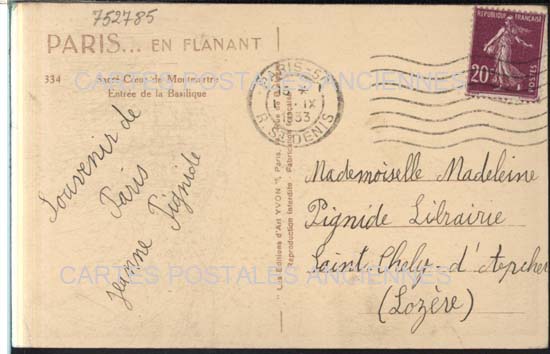 752785
PARIS... EN FLANANT
334 Sacré-Cœur de Montmartre
Entrée de la Basilique
Souvenir de
Paris
Jeanne Pignide
"Les Editions d'Art YVON", Paris,
Reproduction interdite - Fabrication française
PARIS-
IX
1933
R. St DENIS
REPUBLIQUE FRANÇAISE
20c
POSTES
Mademoiselle Madeleine
Pignide Librairie
Saint-Chely-d'Apcher
(Lozère)
CARTES POSTALES ANCIENNES
CARTES POSTALES ANCIENNES